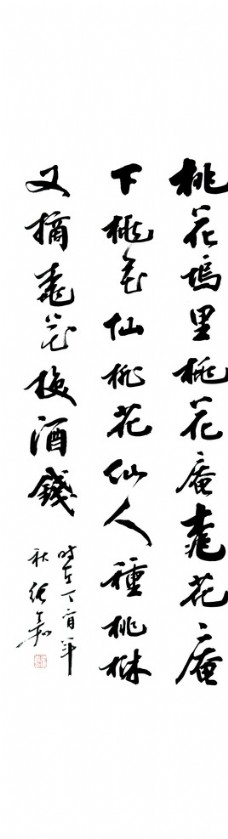 桃花塢里桃花庵桃花庵
下桃花仙桃花仙人種桃樹
又摘桃花換酒錢
時在丁亥年
秋